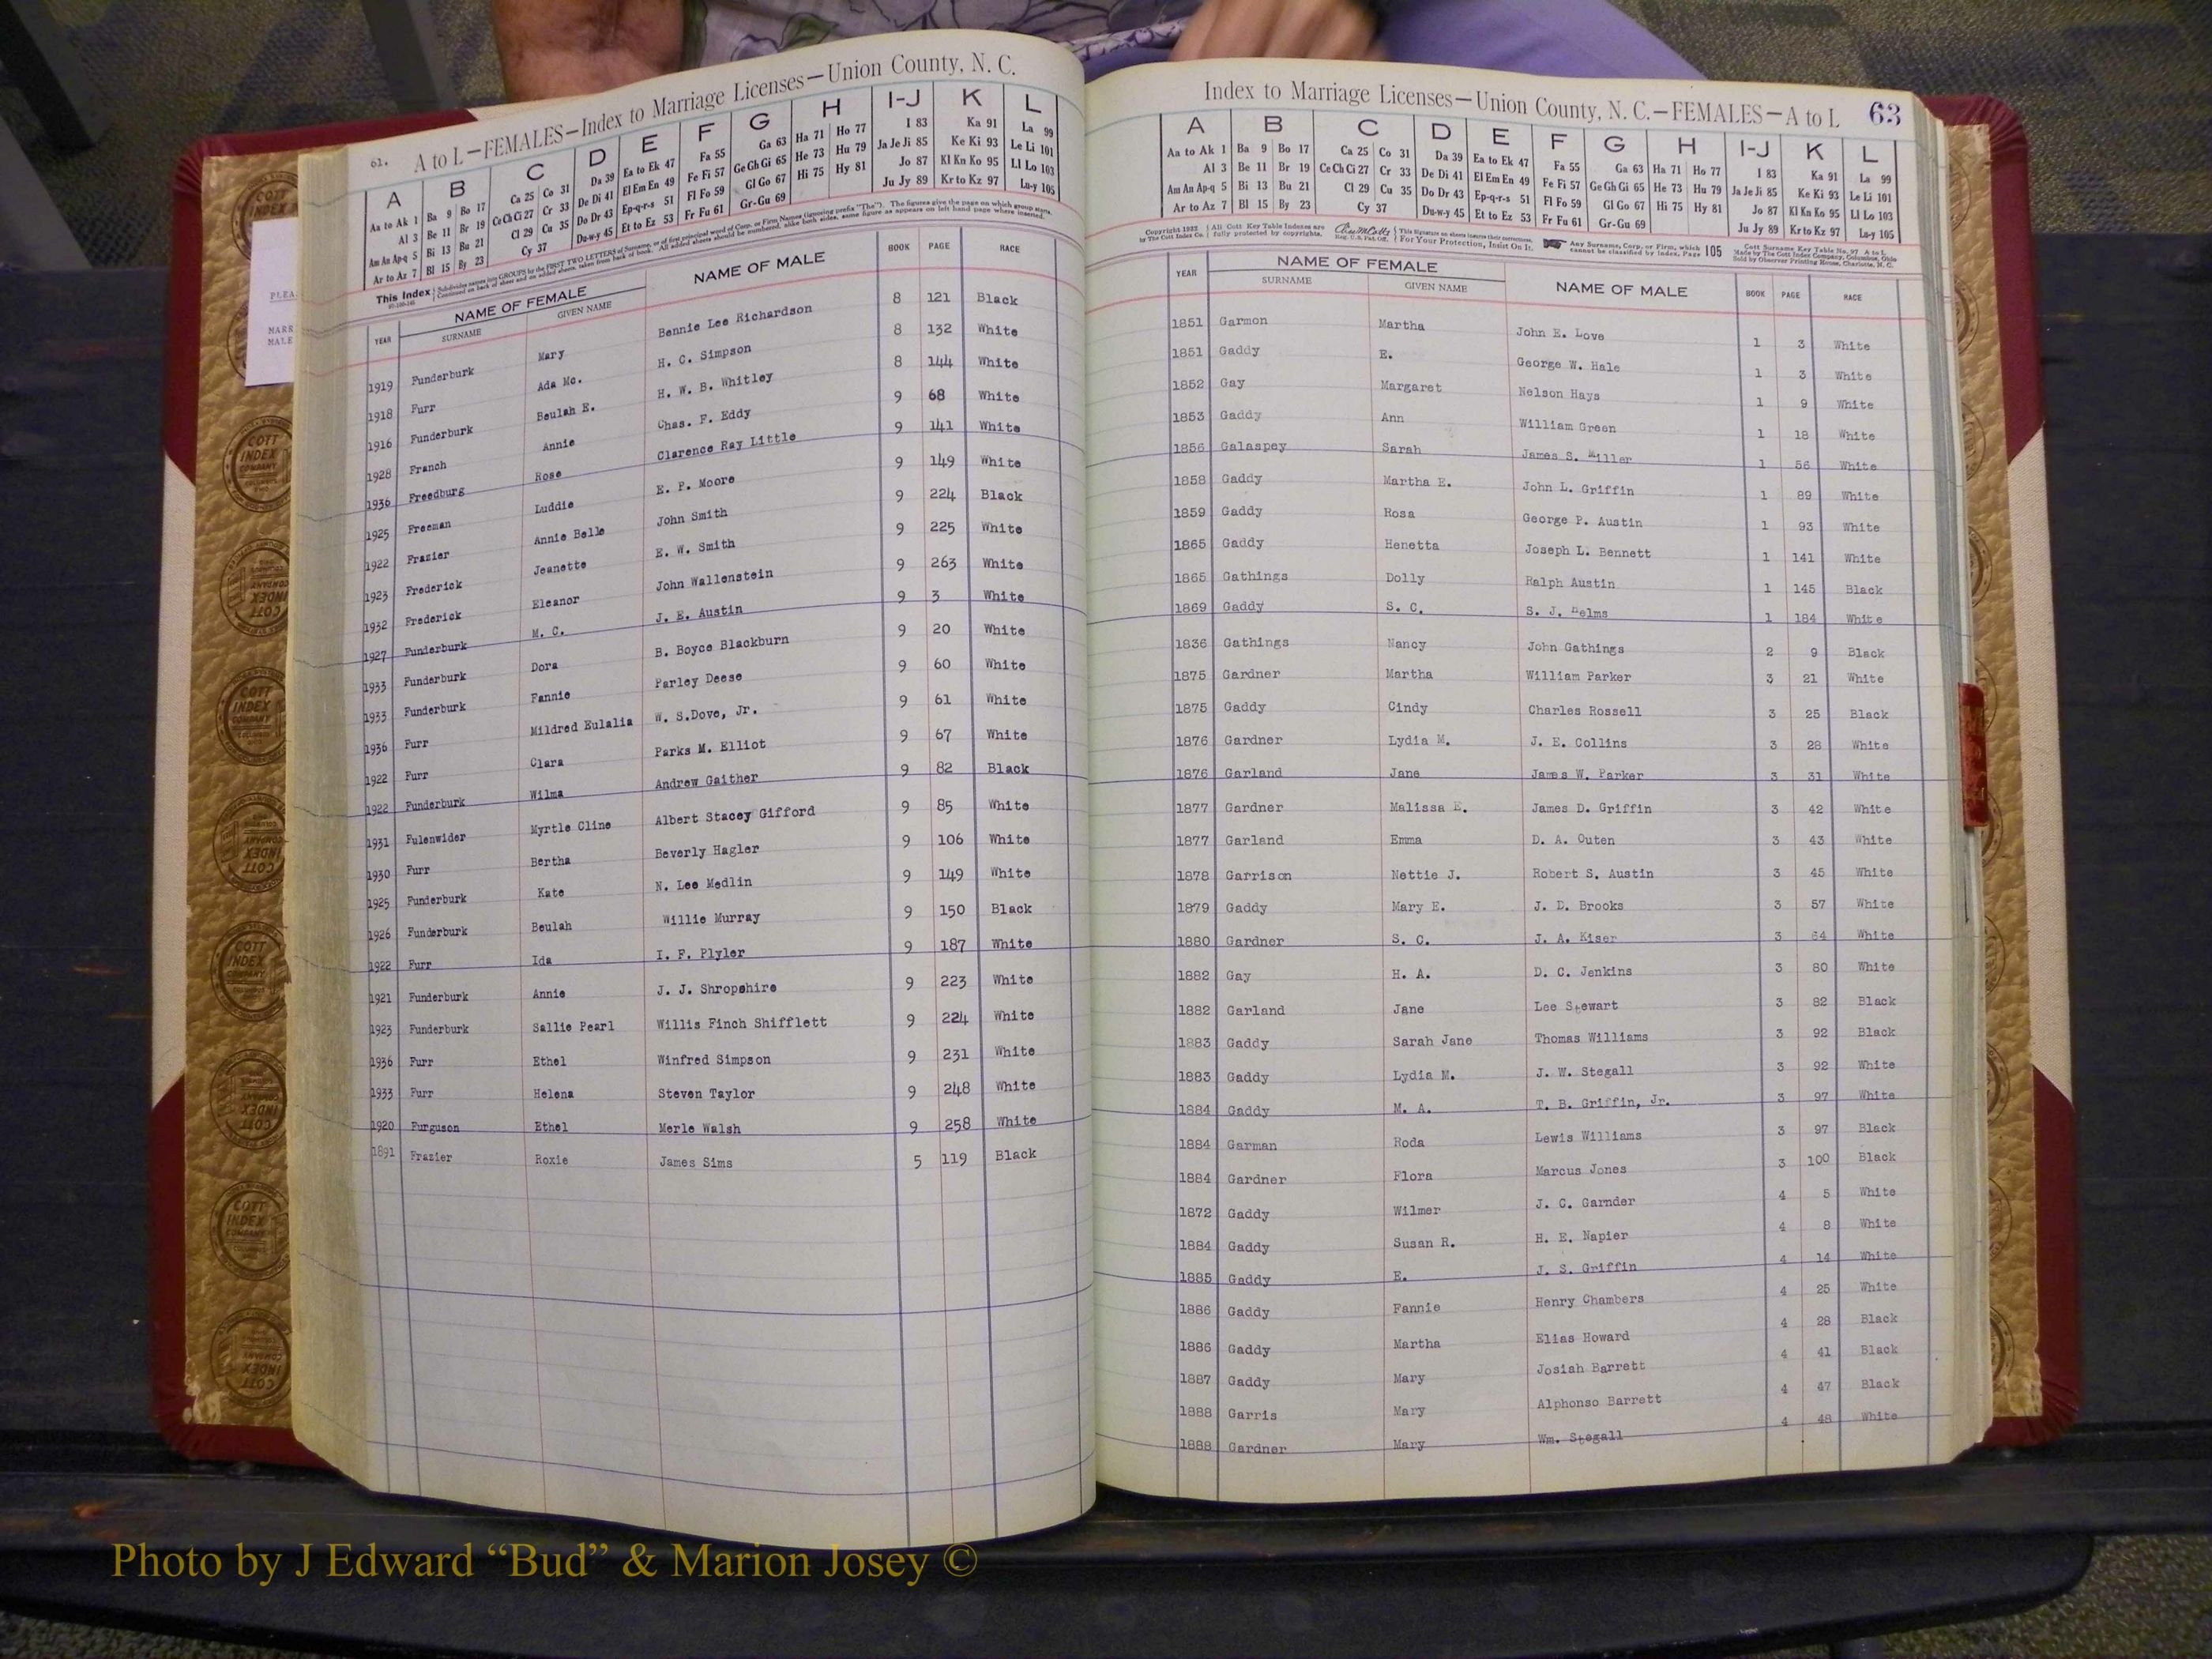 61. A to L—FEMALES—Index to Marriage Licenses—Union County, N. C.
A B C D E F G H I-J K L
Aa to Ak 1 Ba 9 Bo 17 Ca 25 Co 31 Da 39 Ea to Ek 47 Fa 55 Ga 63 Ha 71 Ho 77 I 83 Ka 91 La 99
Al 3 Be 11 Br 19 Ce Ch Ci 27 Cr 33 De Di 41 El Em En 49 Fe Fi 57 Ge Gh Gi 65 He 73 Hu 79 Ja Je Ji 85 Ke Ki 93 Le Li 101
Am An Ap-q 5 Bi 13 Bu 21 Cl 29 Cu 35 Do Dr 43 Ep-q-r-s 51 Fl Fo 59 Gl Go 67 Hi 75 Hy 81 Jo 87 Kl Kn Ko 95 Ll Lo 103
Ar to Az 7 Bl 15 By 23 Cy 37 Du-w-y 45 Et to Ez 53 Fr Fu 61 Gr-Gu 69 Ju Jy 89 Kr to Kz 97 Lu-y 105
This Index Subdivides names into GROUPS by the FIRST TWO LETTERS of Surname, or of first principal word of Corp. or Firm Names (ignoring prefix "The"). The figures give the page on which group starts.
Continued on back of sheet and on added sheets, taken from back of book. All added sheets should be numbered, alike both sides, same figure as appears on left hand page where inserted.
YEAR NAME OF FEMALE NAME OF MALE BOOK PAGE RACE
SURNAME GIVEN NAME
1919 Funderburk Mary Bennie Lee Richardson 8 121 Black
1918 Furr Ada Mc. H. C. Simpson 8 132 White
1916 Funderburk Beulah E. H. W. B. Whitley 8 144 White
1928 Franch Annie Chas. F. Eddy 9 68 White
1936 Freedburg Rose Clarence Ray Little 9 141 White
1925 Freeman Luddie E. P. Moore 9 149 White
1922 Frazier Annie Belle John Smith 9 224 Black
1923 Frederick Jeanette E. W. Smith 9 225 White
1932 Frederick Eleanor John Wallenstein 9 263 White
1927 Funderburk M. C. J. E. Austin 9 3 White
1933 Funderburk Dora B. Boyce Blackburn 9 20 White
1933 Funderburk Fannie Parley Deese 9 60 White
1936 Furr Mildred Eulalia W. S.Dove, Jr. 9 61 White
1922 Furr Clara Parks M. Elliot 9 67 White
1922 Funderburk Wilma Andrew Gaither 9 82 Black
1931 Fulenwider Myrtle Cline Albert Stacey Gifford 9 85 White
1930 Furr Bertha Beverly Hagler 9 106 White
1925 Funderburk Kate N. Lee Medlin 9 149 White
1926 Funderburk Beulah Willie Murray 9 150 Black
1922 Furr Ida I. F. Plyler 9 187 White
1921 Funderburk Annie J. J. Shropshire 9 223 White
1923 Funderburk Sallie Pearl Willis Finch Shifflett 9 224 White
1936 Furr Ethel Winfred Simpson 9 231 White
1933 Furr Helena Steven Taylor 9 248 White
1920 Furguson Ethel Merle Walsh 9 258 White
1891 Frazier Roxie James Sims 5 119 Black
Index to Marriage Licenses—Union County, N. C.—FEMALES—A to L 63
A B C D E F G H I-J K L
Aa to Ak 1 Ba 9 Bo 17 Ca 25 Co 31 Da 39 Ea to Ek 47 Fa 55 Ga 63 Ha 71 Ho 77 I 83 Ka 91 La 99
Al 3 Be 11 Br 19 Ce Ch Ci 27 Cr 33 De Di 41 El Em En 49 Fe Fi 57 Ge Gh Gi 65 He 73 Hu 79 Ja Je Ji 85 Ke Ki 93 Le Li 101
Am An Ap-q 5 Bi 13 Bu 21 Cl 29 Cu 35 Do Dr 43 Ep-q-r-s 51 Fl Fo 59 Gl Go 67 Hi 75 Hy 81 Jo 87 Kl Kn Ko 95 Ll Lo 103
Ar to Az 7 Bl 15 By 23 Cy 37 Du-w-y 45 Et to Ez 53 Fr Fu 61 Gr-Gu 69 Ju Jy 89 Kr to Kz 97 Lu-y 105
Copyright 1922 by The Cott Index Co. All Cott Key Table Indexes are fully protected by copyrights. Reg. U.S. Pat. Off. This signature on sheets insures their correctness. For Your Protection, Insist On It. Any Surname, Corp. or Firm, which cannot be classified by Index, Page 105 Cott Surname Key Table No. 97 A to L Made by The Cott Index Company, Columbus, Ohio Sold by Observer Printing House, Charlotte, N. C.
YEAR NAME OF FEMALE NAME OF MALE BOOK PAGE RACE
SURNAME GIVEN NAME
1851 Garmon Martha John E. Love 1 3 White
1851 Gaddy E. George W. Hale 1 3 White
1852 Gay Margaret Nelson Hays 1 9 White
1853 Gaddy Ann William Green 1 18 White
1856 Galaspey Sarah James S. Miller 1 56 White
1858 Gaddy Martha E. John L. Griffin 1 89 White
1859 Gaddy Rosa George P. Austin 1 93 White
1865 Gaddy Henetta Joseph L. Bennett 1 141 White
1865 Gathings Dolly Ralph Austin 1 145 Black
1869 Gaddy S. C. S. J. Helms 1 184 White
1836 Gathings Nancy John Gathings 2 9 Black
1875 Gardner Martha William Parker 3 21 White
1875 Gaddy Cindy Charles Rossell 3 25 Black
1876 Gardner Lydia M. J. E. Collins 3 28 White
1876 Garland Jane James W. Parker 3 31 White
1877 Gardner Malissa E. James D. Griffin 3 42 White
1877 Garland Emma D. A. Outen 3 43 White
1878 Garrison Nettie J. Robert S. Austin 3 45 White
1879 Gaddy Mary E. J. D. Brooks 3 57 White
1880 Gardner S. C. J. A. Kiser 3 64 White
1882 Gay H. A. D. C. Jenkins 3 80 White
1882 Garland Jane Lee Stewart 3 82 Black
1883 Gaddy Sarah Jane Thomas Williams 3 92 Black
1883 Gaddy Lydia M. J. W. Stegall 3 92 White
1884 Gaddy M. A. T. B. Griffin, Jr. 3 97 White
1884 Garman Roda Lewis Williams 3 97 Black
1884 Gardner Flora Marcus Jones 3 100 Black
1872 Gaddy Wilmer J. C. Garnder 4 5 White
1884 Gaddy Susan R. H. E. Napier 4 8 White
1885 Gaddy E. J. S. Griffin 4 14 White
1886 Gaddy Fannie Henry Chambers 4 25 White
1886 Gaddy Martha Elias Howard 4 28 Black
1887 Gaddy Mary Josiah Barrett 4 41 Black
1888 Garris Mary Alphonso Barrett 4 47 Black
1888 Gardner Mary Wm. Stegall 4 48 White
COTT INDEX COMPANY
Photo by J Edward “Bud” & Marion Josey ©